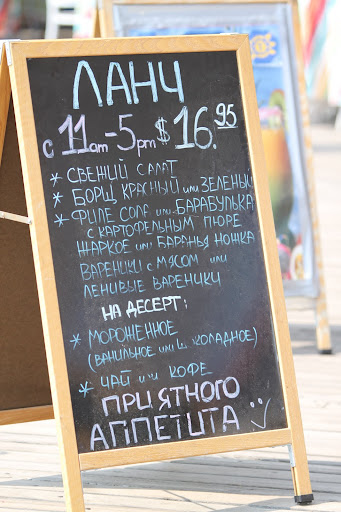 ЛАНЧ
с 11am-5pm $16.95
* СВЕЖИЙ САЛАТ
* БОРЩ КРАСНЫЙ или ЗЕЛЕНЫЙ
* ФИЛЕ СОЛЯ или БАРАБУЛЬКА
С КАРТОФЕЛЬНЫМ ПЮРЕ
ЖАРКОЕ или БАРАНЬЯ НОЖКА
ВАРЕНИКИ С МЯСОМ или
ЛЕНИВЫЕ ВАРЕНИКИ
НА ДЕСЕРТ:
* МОРОЖЕННОЕ
(ВАНИЛЬНОЕ или ШОКОЛАДНОЕ)
* ЧАЙ или КОФЕ
ПРИЯТНОГО
АППЕТИТА :)